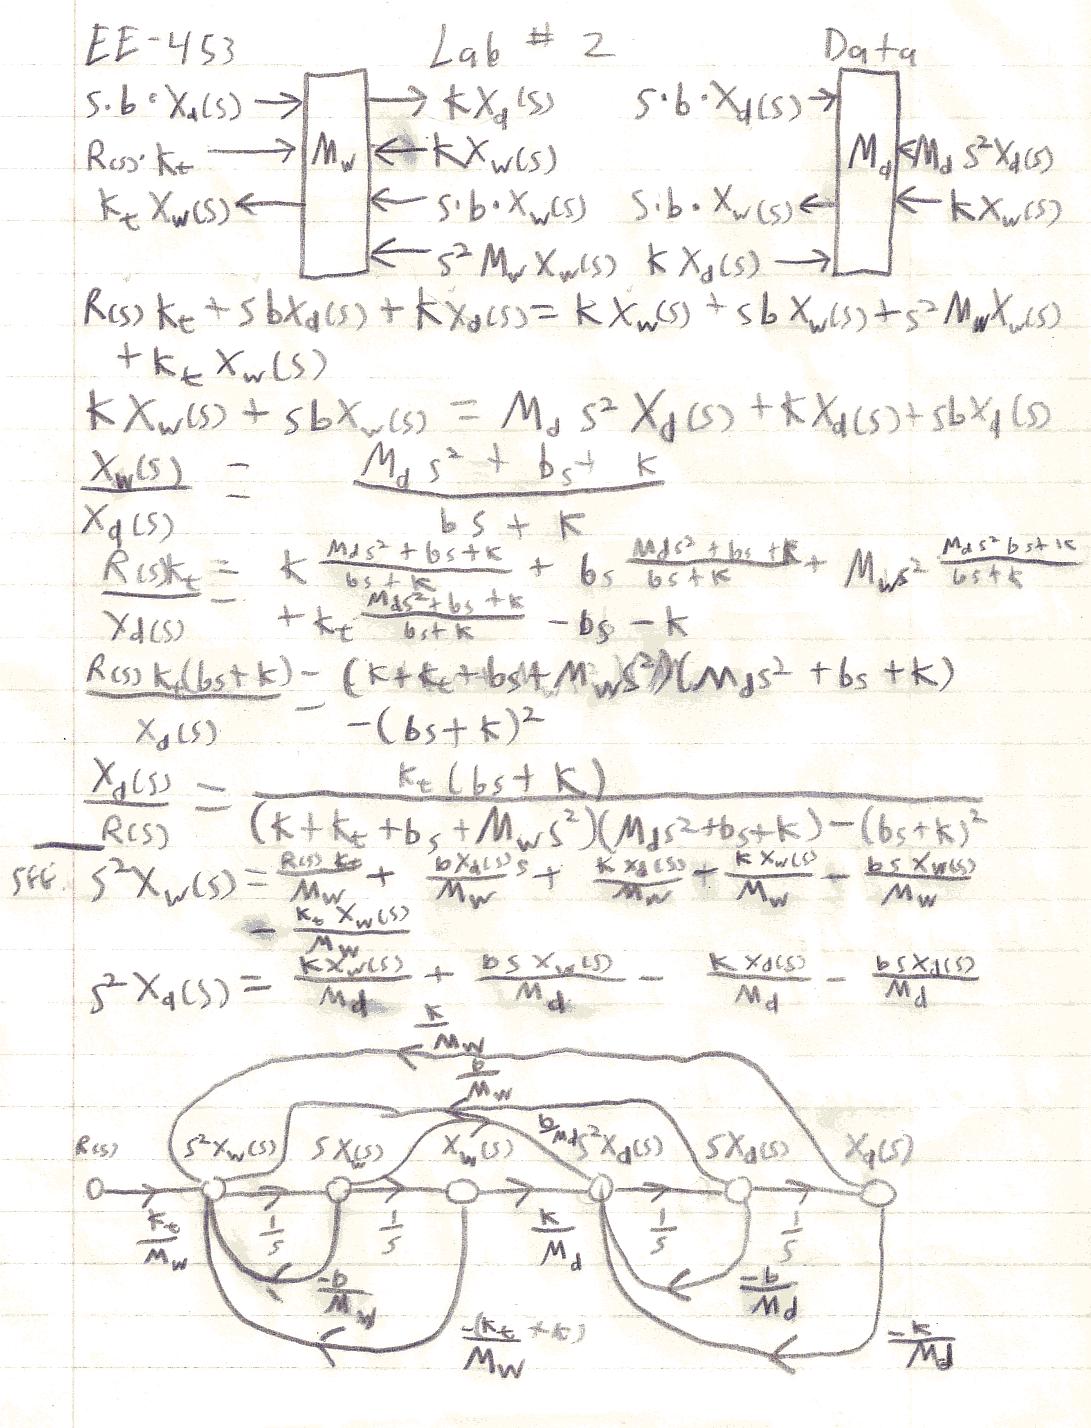 EE-453 Lab # 2 Data
s·b·X_d(s) → → kX_d(s) s·b·X_d(s) →
R(s)·k_t → M_w ← kX_w(s) M_d ← M_d s²X_d(s)
k_t X_w(s) ← ← s·b·X_w(s) s·b·X_w(s) ← ← kX_w(s)
← s² M_w X_w(s) k X_d(s) →
R(s) k_t + sbX_d(s) + kX_d(s) = kX_w(s) + sbX_w(s) + s²M_wX_w(s)
+ k_t X_w(s)
kX_w(s) + sbX_w(s) = M_d s² X_d(s) + kX_d(s) + sbX_d(s)
X_w(s) / X_d(s) = (M_d s² + bs + k) / (bs + k)
R(s)k_t / X_d(s) = k (M_d s² + bs + k)/(bs + k) + bs (M_d s² + bs + k)/(bs + k) + M_w s² (M_d s² bs + k)/(bs + k)
+ k_t (M_d s² + bs + k)/(bs + k) - bs - k
R(s) k_t(bs + k) / X_d(s) = (k + k_t + bs + M_w s²)(M_d s² + bs + k)
- (bs + k)²
X_d(s) / R(s) = k_t (bs + k) / (k + k_t + bs + M_w s²)(M_d s² + bs + k) - (bs + k)²
SFG. s²X_w(s) = R(s) k_t/M_w + bX_d(s)s/M_w + k X_d(s)/M_w + k X_w(s)/M_w - bs X_w(s)/M_w
- k_t X_w(s)/M_w
s² X_d(s) = k X_w(s)/M_d + bs X_w(s)/M_d - k X_d(s)/M_d - bs X_d(s)/M_d
k/M_w
b/M_w
R(s) s²X_w(s) sX_w(s) X_w(s) b/M_d s²X_d(s) sX_d(s) X_d(s)
k_t/M_w 1/s 1/s k/M_d 1/s 1/s
-b/M_w -b/M_d
-(k_t + k)/M_w -k/M_d